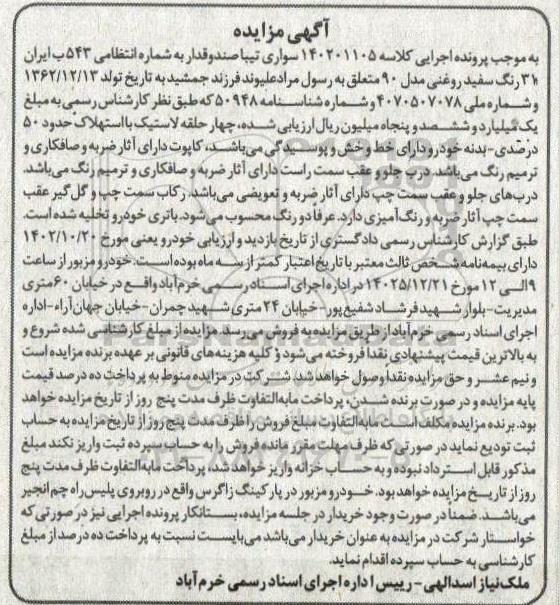 آگهی مزایده
به موجب پرونده اجرایی کلاسه ۱۴۰۲۰۱۱۰۵ سواری تیبا صندوقدار به شماره انتظامی ۵۴۳ب ایران
۳۱ رنگ سفید روغنی مدل ۹۰ متعلق به رسول مرادعلیوند فرزند جمشید به تاریخ تولد ۱۳۶۲/۱۲/۱۳
و شماره ملی ۴۰۷۰۵۰۷۰۷۸ و شماره شناسنامه ۵۰۹۴۸ که طبق نظر کارشناس رسمی به مبلغ
یک میلیارد و ششصد و پنجاه میلیون ریال ارزیابی شده، چهار حلقه لاستیک با استهلاک حدود ۵۰
درصدی-بدنه خودرو دارای خط و خش و پوسیدگی می‌باشد، کاپوت دارای آثار ضربه و صافکاری و
ترمیم رنگ می‌باشد. درب جلو و عقب سمت راست دارای آثار ضربه و صافکاری و ترمیم رنگ می‌باشد.
درب‌های جلو و عقب سمت چپ دارای آثار ضربه و تعویضی می‌باشد. رکاب سمت چپ و گل‌گیر عقب
سمت چپ آثار ضربه و رنگ‌آمیزی دارد. عرفا دو رنگ محسوب می‌شود. باتری خودرو تخلیه شده است.
طبق گزارش کارشناس رسمی دادگستری از تاریخ بازدید و ارزیابی خودرو یعنی مورخ ۱۴۰۲/۱۰/۲۰
دارای بیمه‌نامه شخص ثالث معتبر با تاریخ اعتبار کمتر از سه ماه بوده است. خودرو مزبور از ساعت
۹ الی ۱۲ مورخ ۱۴۰۲۵/۱۲/۲۱ در اداره اجرای اسناد رسمی خرم‌آباد واقع در خیابان ۶۰ متری
مدیریت-بلوار شهید فرشاد شفیع‌پور-خیابان ۲۴ متری شهید چمران-خیابان جهان‌آراء-اداره
اجرای اسناد رسمی خرم‌آباد از طریق مزایده به فروش می‌رسد. مزایده از مبلغ کارشناسی شده شروع و
به بالاترین قیمت پیشنهادی نقداً فروخته می‌شود و کلیه هزینه‌های قانونی بر عهده برنده مزایده است
و نیم عشر و حق مزایده نقداً وصول خواهد شد. شرکت در مزایده منوط به پرداخت ده درصد قیمت
پایه مزایده و در صورت برنده شدن، پرداخت مابه‌التفاوت ظرف مدت پنج روز از تاریخ مزایده خواهد
بود. برنده مزایده مکلف است مابه‌التفاوت مبلغ فروش را ظرف مدت پنج روز از تاریخ مزایده به حساب
ثبت تودیع نماید در صورتی که ظرف مهلت مقرر مانده فروش را به حساب سپرده ثبت واریز نکند مبلغ
مذکور قابل استرداد نبوده و به حساب خزانه واریز خواهد شد، پرداخت مابه‌التفاوت ظرف مدت پنج
روز از تاریخ مزایده خواهد بود. خودرو مزبور در پارکینگ زاگرس واقع در روبروی پلیس راه چم انجیر
می‌باشد. ضمنا در صورت وجود خریدار در جلسه مزایده، بستانکار پرونده اجرایی نیز در صورتی که
خواستار شرکت در مزایده به عنوان خریدار می‌باشد می‌بایست نسبت به پرداخت ده درصد از مبلغ
کارشناسی به حساب سپرده اقدام نماید.
ملک‌نیاز اسدالهی-رییس اداره اجرای اسناد رسمی خرم‌آباد